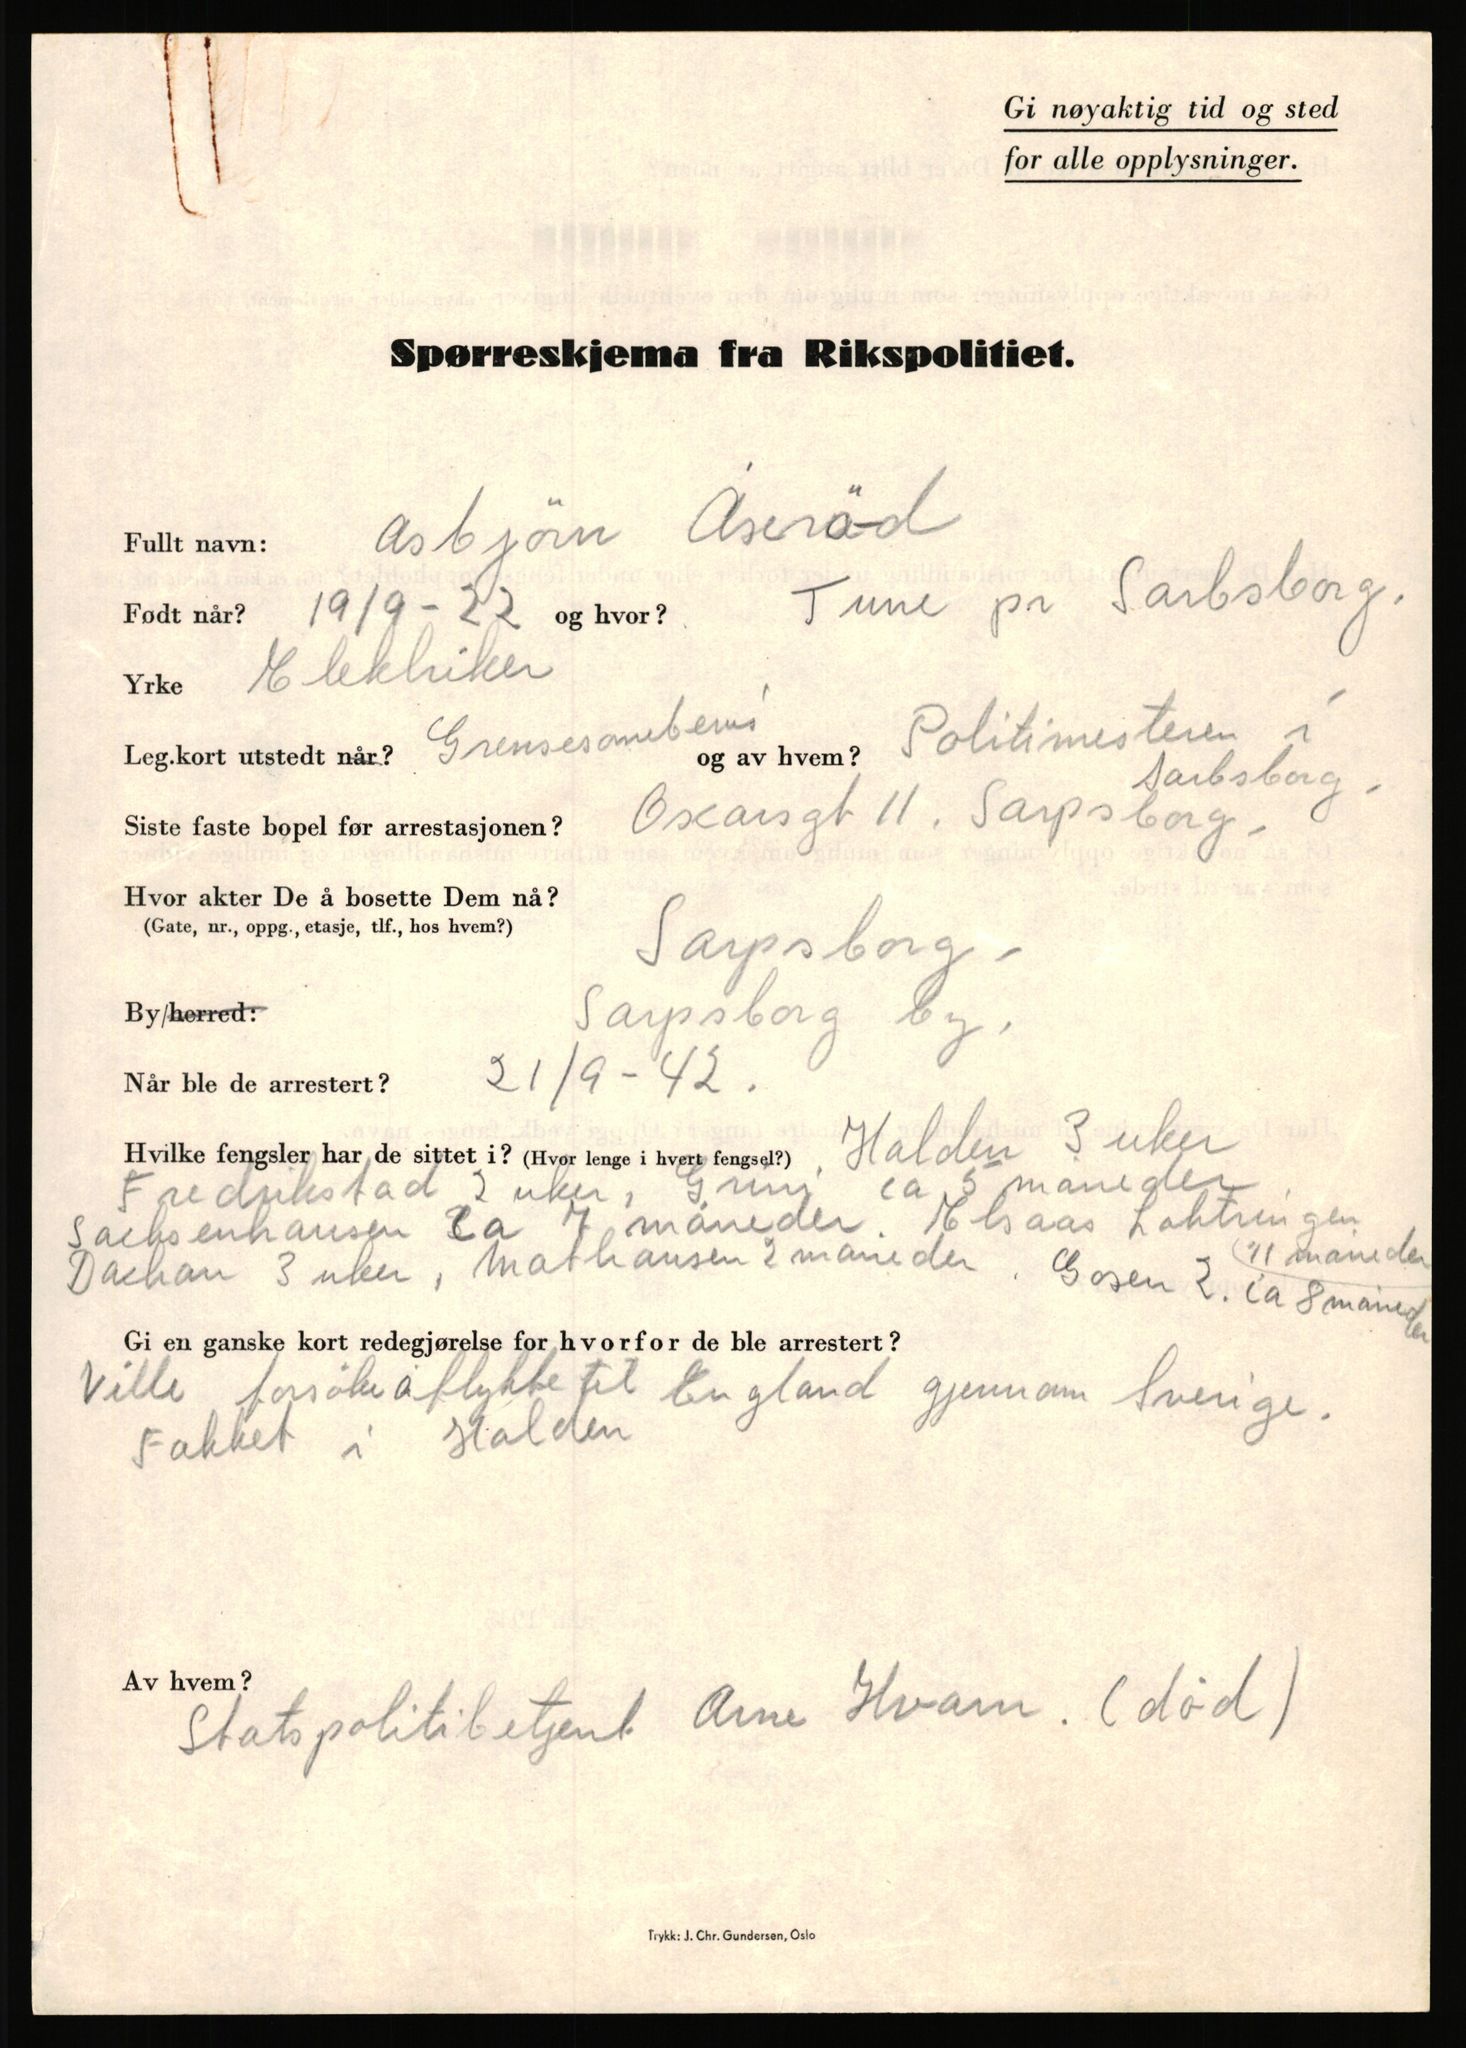 Gi nøyaktig tid og sted
for alle opplysninger.
Spørreskjema fra Rikspolitiet.
Fullt navn: Asbjörn Åseröd
Født når? 19/9-22 og hvor? Tune pr Sarbsborg.
Yrke Elektriker
Leg.kort utstedt når? Grensesonebevis og av hvem? Politimesteren i
Sarbsborg.
Siste faste bopel før arrestasjonen? Oscarsgt 11. Sarpsborg.
Hvor akter De å bosette Dem nå?
(Gate, nr., oppg., etasje, tlf., hos hvem?)
Sarpsborg.
By/herred: Sarpsborg by.
Når ble de arrestert? 21/9-42.
Hvilke fengsler har de sittet i? (Hvor lenge i hvert fengsel?) Halden 3 uker
Fredrikstad 2 uker, Grini ca 5 måneder
Sachsenhausen ca 7 måneder. Elsaas Lohtringen
11 måneder
Dachau 3 uker, Mathausen 2 måneder. Gosen 2. ca 8 måneder
Gi en ganske kort redegjørelse for hvorfor de ble arrestert?
Ville forsöke å flykte til England gjennom Sverige.
Fakket i Halden
Av hvem?
Statspolitibetjent Arne Hvam. (død)
Trykk: J. Chr. Gundersen, Oslo